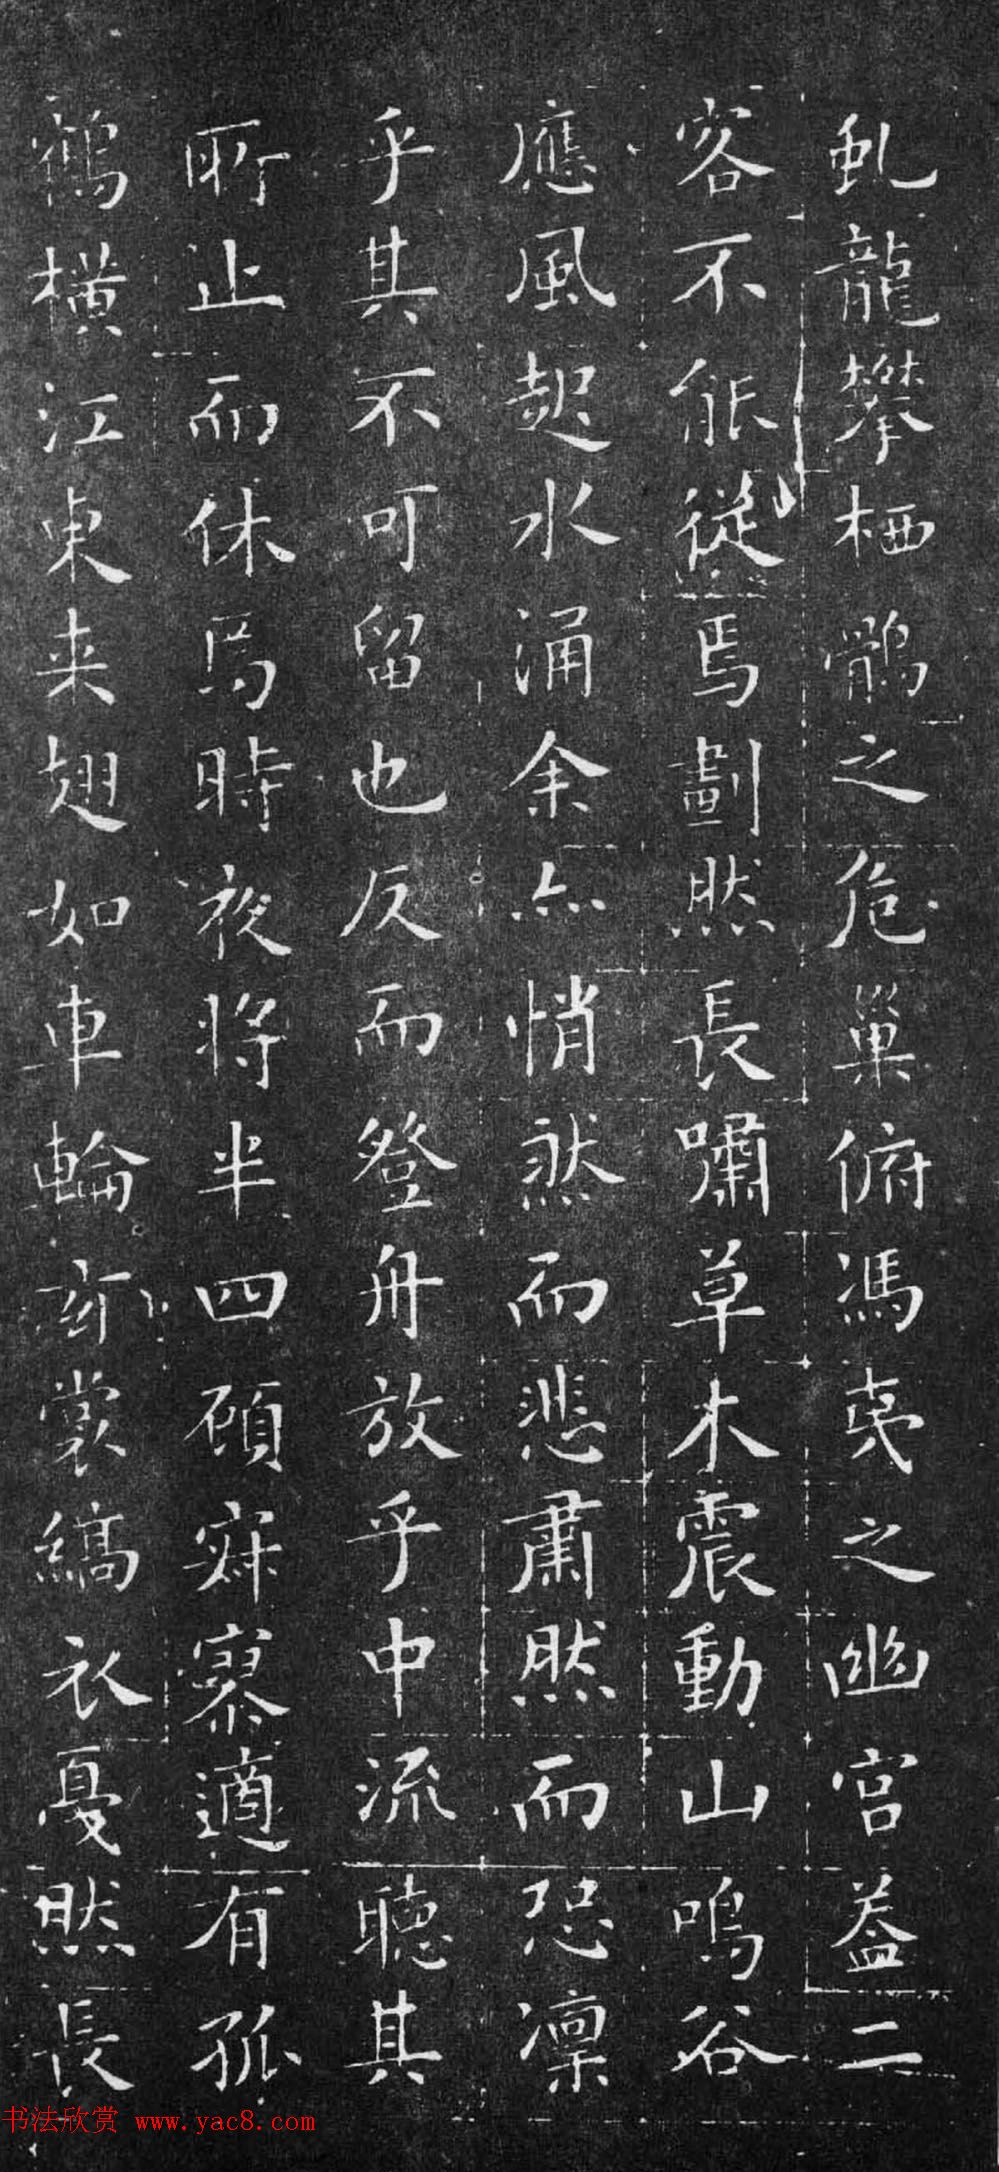 虬龍攀栖鶻之危巢俯馮夷之幽宮蓋二
客不能從焉劃然長嘯草木震動山鳴谷
應風起水涌余亦悄然而悲肅然而恐凜
乎其不可留也反而登舟放乎中流聽其
所止而休焉時夜將半四顧寂寥適有孤
鶴橫江東来翅如車輪玄裳縞衣戛然長
书法欣赏 www.yac8.com